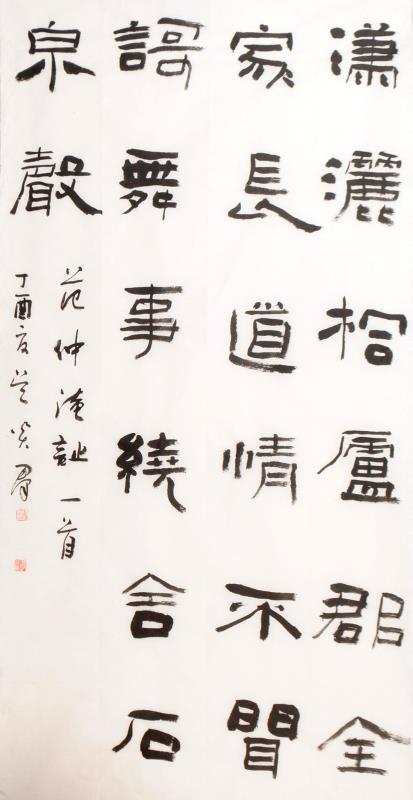 瀟灑桐廬郡全
家長道情不聞
謌舞事繞舍石
泉聲
范仲淹詩一首
丁酉夏